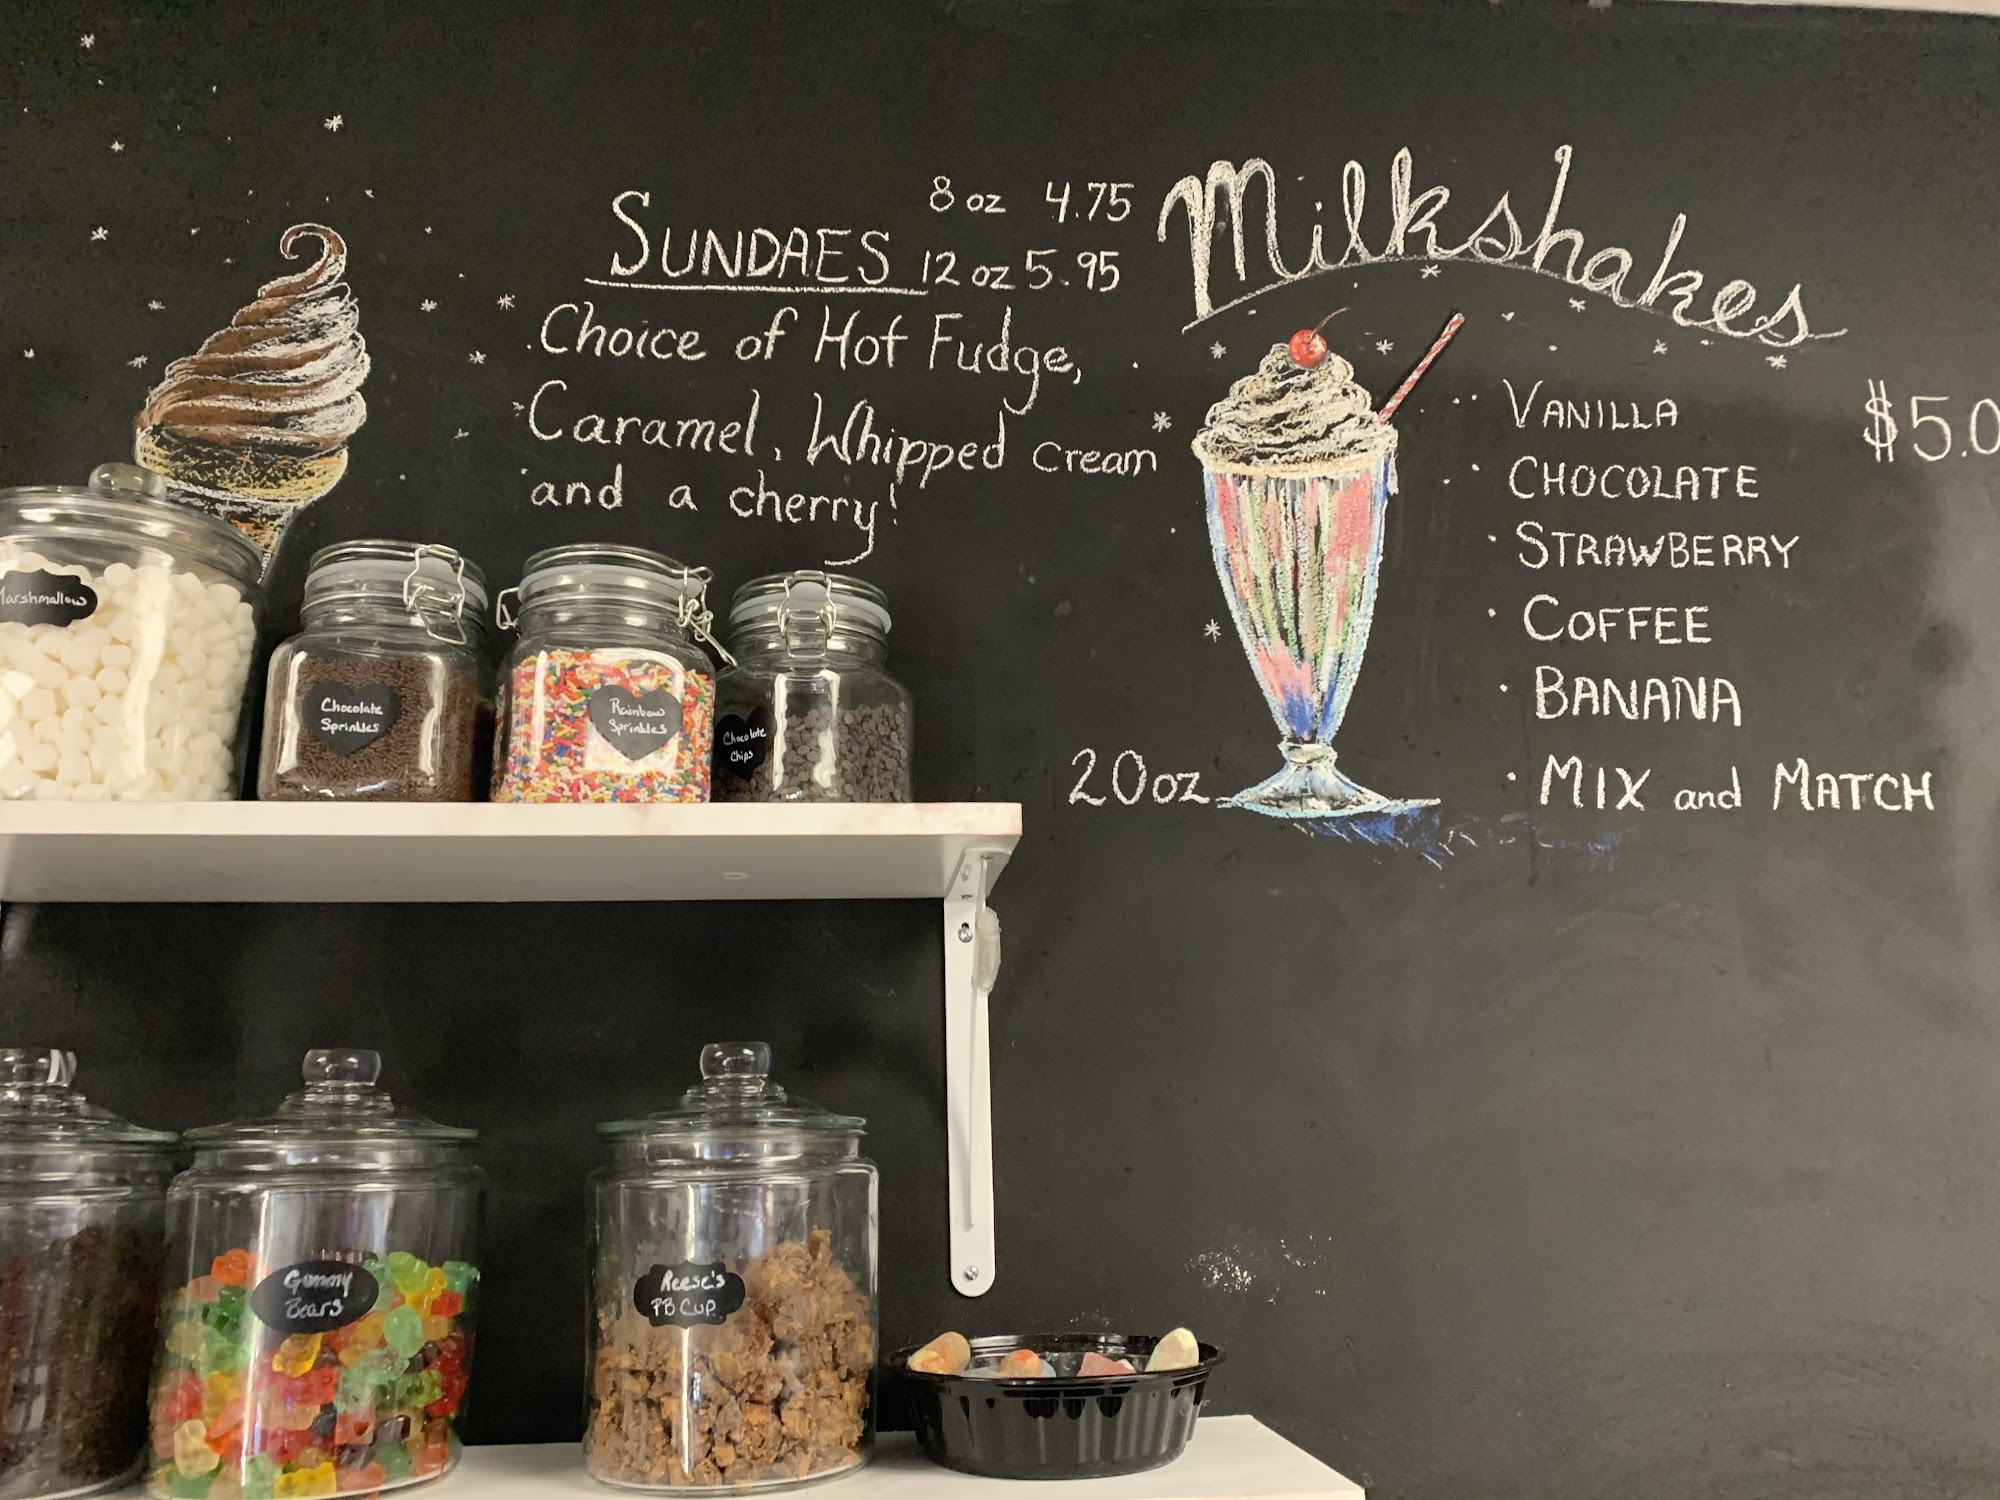 SUNDAES
8 oz 4.75
12 oz 5.95
Choice of Hot Fudge,
Caramel, Whipped cream
and a cherry!
Milkshakes
VANILLA
CHOCOLATE
STRAWBERRY
COFFEE
BANANA
MIX and MATCH
$5.0
20oz
Marshmallow
Chocolate
Sprinkles
Rainbow
Sprinkles
Chocolate
Chips
Gummy
Bears
Reese's
PB Cup